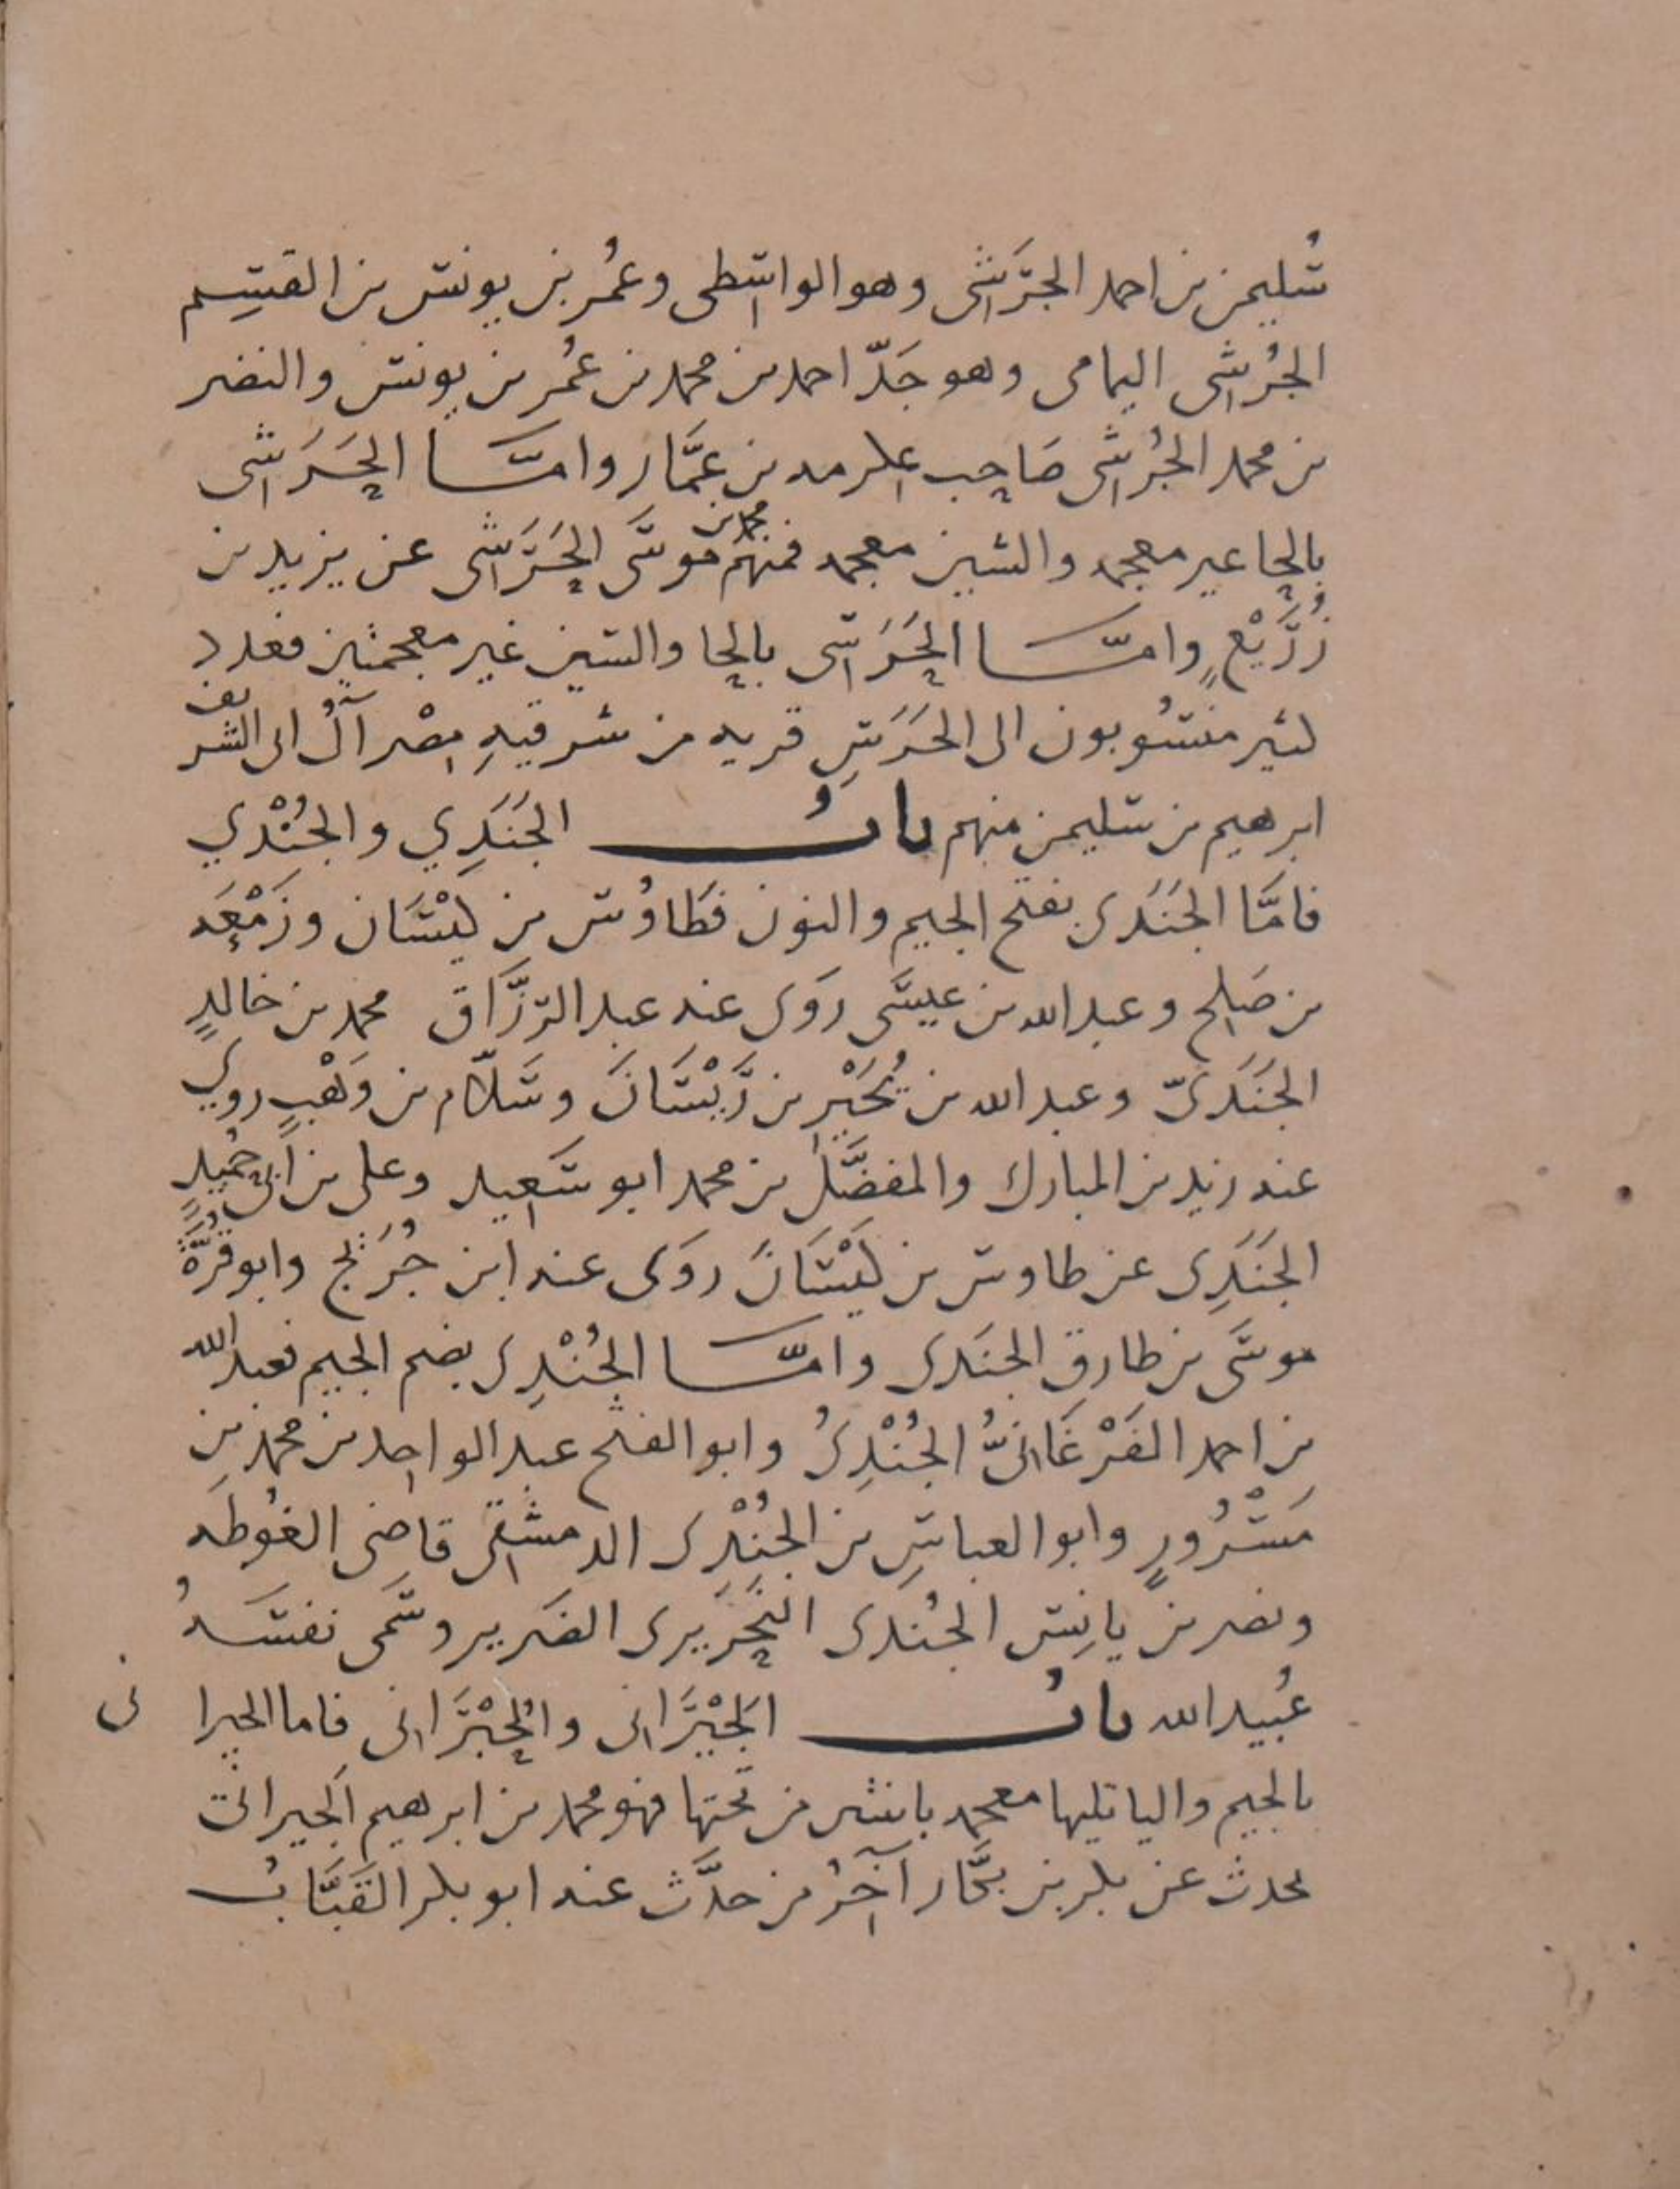 سُليمن بن احمد الجُرَشى وهو الواسِطى وعُمر بن يونس بن القسِم
الجُرشِى اليمامى وهو جَدّ احمد بن محمد بن عُمر بن يونس والنضر
بن محمد الجُرشِى صَاحِب عكرمه بن عمَّار وامَّــا الحَرَشى
بالحا غير معجمه والشين معجمه فمنهم محمد بن موسَى الحَرَشى عن يزيد بن
زُرَيْعٍ وامَّــا الحَرَسِى بالحا والسين غير معجمتين فعدد
كثير منسُوبون الى الحَرَسِ قريه من شرقيهِ مِصْر آلُ ابى الشريف
ابرهيم بن سليمن منهم بابُ الجَنَدِي والجُنْدي
فامَّا الجَنَدى بفتح الجيم والنون فطَاوُس بن كيْسَان وزَمْعَه
بن صَلح وعبد الله بن عيسَى روَى عنه عبد الرزَّاق محمد بن خالدٍ
الجَنَدىّ وعبد الله بن بُحَيْرِ بن رَيْسَانَ وسَلّام بن وَهْبٍ روي
عنه زيد بن المبارك والمفضَّل بن محمد ابو سَعِيد وعلى بن ابى حُمَيدٍ
الجَنَدِى عن طاوس بن كَيْسَانَ روَى عنه ابن جُرَيْج وابو قُرَّةَ
موسَى بن طارق الجنَدى وامَّــا الجُنْدِى بضم الجيم فعبد الله
بن احمد الفَرْغَانىُّ الجُنْدِىُ وابو الفتح عبد الواحِد بن محمد بنِ
مَسْرُورٍ وابو العباسِ بن الجُنْدِى الدمشقِى قاضى الغُوطَه
ونصر بن يانِس الجُندى النِّحْرِيرى الضَرير وسَمَّى نفسَهُ
عُبيد الله بابُ الجَيْرَانى والحِبْرَانى فاما الجيرا نى
بالجيم واليا تليها معجمه باثنتين من تحتها فهو محمد بن ابرهيم الجيرانى
يحدث عن بكر بن بكَّار آخِرُ من حدَّث عنه ابو بكر القَبَّابُ